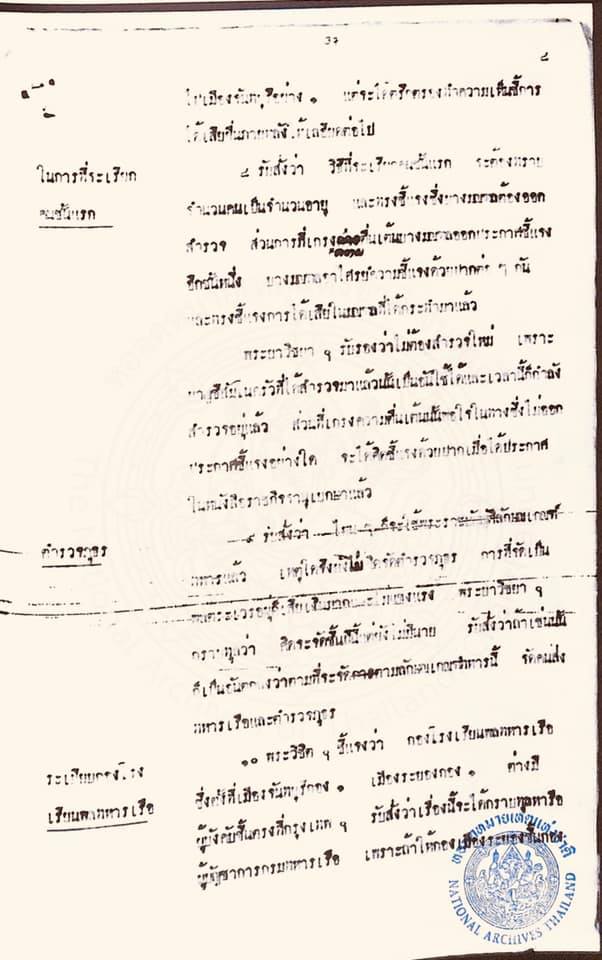 37
๘
ไปเมืองจันทบุรีอย่าง ๑ แต่จะได้ตริตรองทำความเห็นชี้การ
ได้เสียยื่นภายหลังให้เลอียดต่อไป
ในการที่จะเรียก
คนชั้นแรก
๘ รับสั่งว่า วิธีที่จะเรียกคนชั้นแรก จะต้องทราบ
จำนวนคนเป็นจำนวนอายุ และทรงชี้แจงซึ่งบางมณฑลต้องออก
สำรวจ ส่วนการที่เกรงความตื่นเต้นบางมณฑลออกประกาศชี้แจง
อีกชั้นหนึ่ง บางมณฑลอาไศรยความชี้แจงด้วยปากต่าง ๆ กัน
และทรงชี้แจงการได้เสียในมณฑลที่ได้กระทำมาแล้ว
พระยาวิชยา ฯ รับรองว่าไม่ต้องสำรวจใหม่ เพราะ
บาญชีสัมโนครัวที่ได้สำรวจมาแล้วนั้นเป็นอันใช้ได้และเวลานี้ก็กำลัง
สำรวจอยู่แล้ว ส่วนที่เกรงความตื่นเต้นนั้นพอใจในทางซึ่งไม่ออก
ประกาศชี้แจงอย่างใด จะได้คิดชี้แจงด้วยปากเมื่อได้ประกาศ
ในหนังสือราชกิจจานุเบกษาแล้ว
ตำรวจภูธร
๙ รับสั่งว่า ไหน ๆ ก็จะใช้พระราชบัญญัติลักษณเกณฑ์
ทหารแล้ว เหตุใดจึงยังไม่คิดจัดตำรวจภูธร การที่จัดเป็น
พลตระเวรอยู่ก็เสียเงินมากและไม่แขงแรง พระยาวิชยา ฯ
กราบทูลว่า คิดจะจัดขึ้นปีนี้แต่ยังไม่มีนาย รับสั่งว่าถ้าเช่นนั้น
ก็เป็นอันตกลงว่าตามที่จะจัดการตามลักษณเกณฑ์ทหารนี้ จัดคนส่ง
ทหารเรือและตำรวจภูธร
ระเบียบกองโรง
เรียนพลทหารเรือ
๑๐ พระวิชิต ฯ ชี้แจงว่า กองโรงเรียนพลทหารเรือ
ซึ่งตั้งที่เมืองจันทบุรีกอง ๑ เมืองระยองกอง ๑ ต่างมี
ผู้บังคับขึ้นตรงที่กรุงเทพ ฯ รับสั่งว่าเรื่องนี้จะได้กราบทูลหารือ
ผู้บัญชาการกรมทหารเรือ เพราะถ้าให้กองเมืองระยองขึ้นกอง
หอจดหมายเหตุแห่งชาติ
NATIONAL ARCHIVES THAILAND